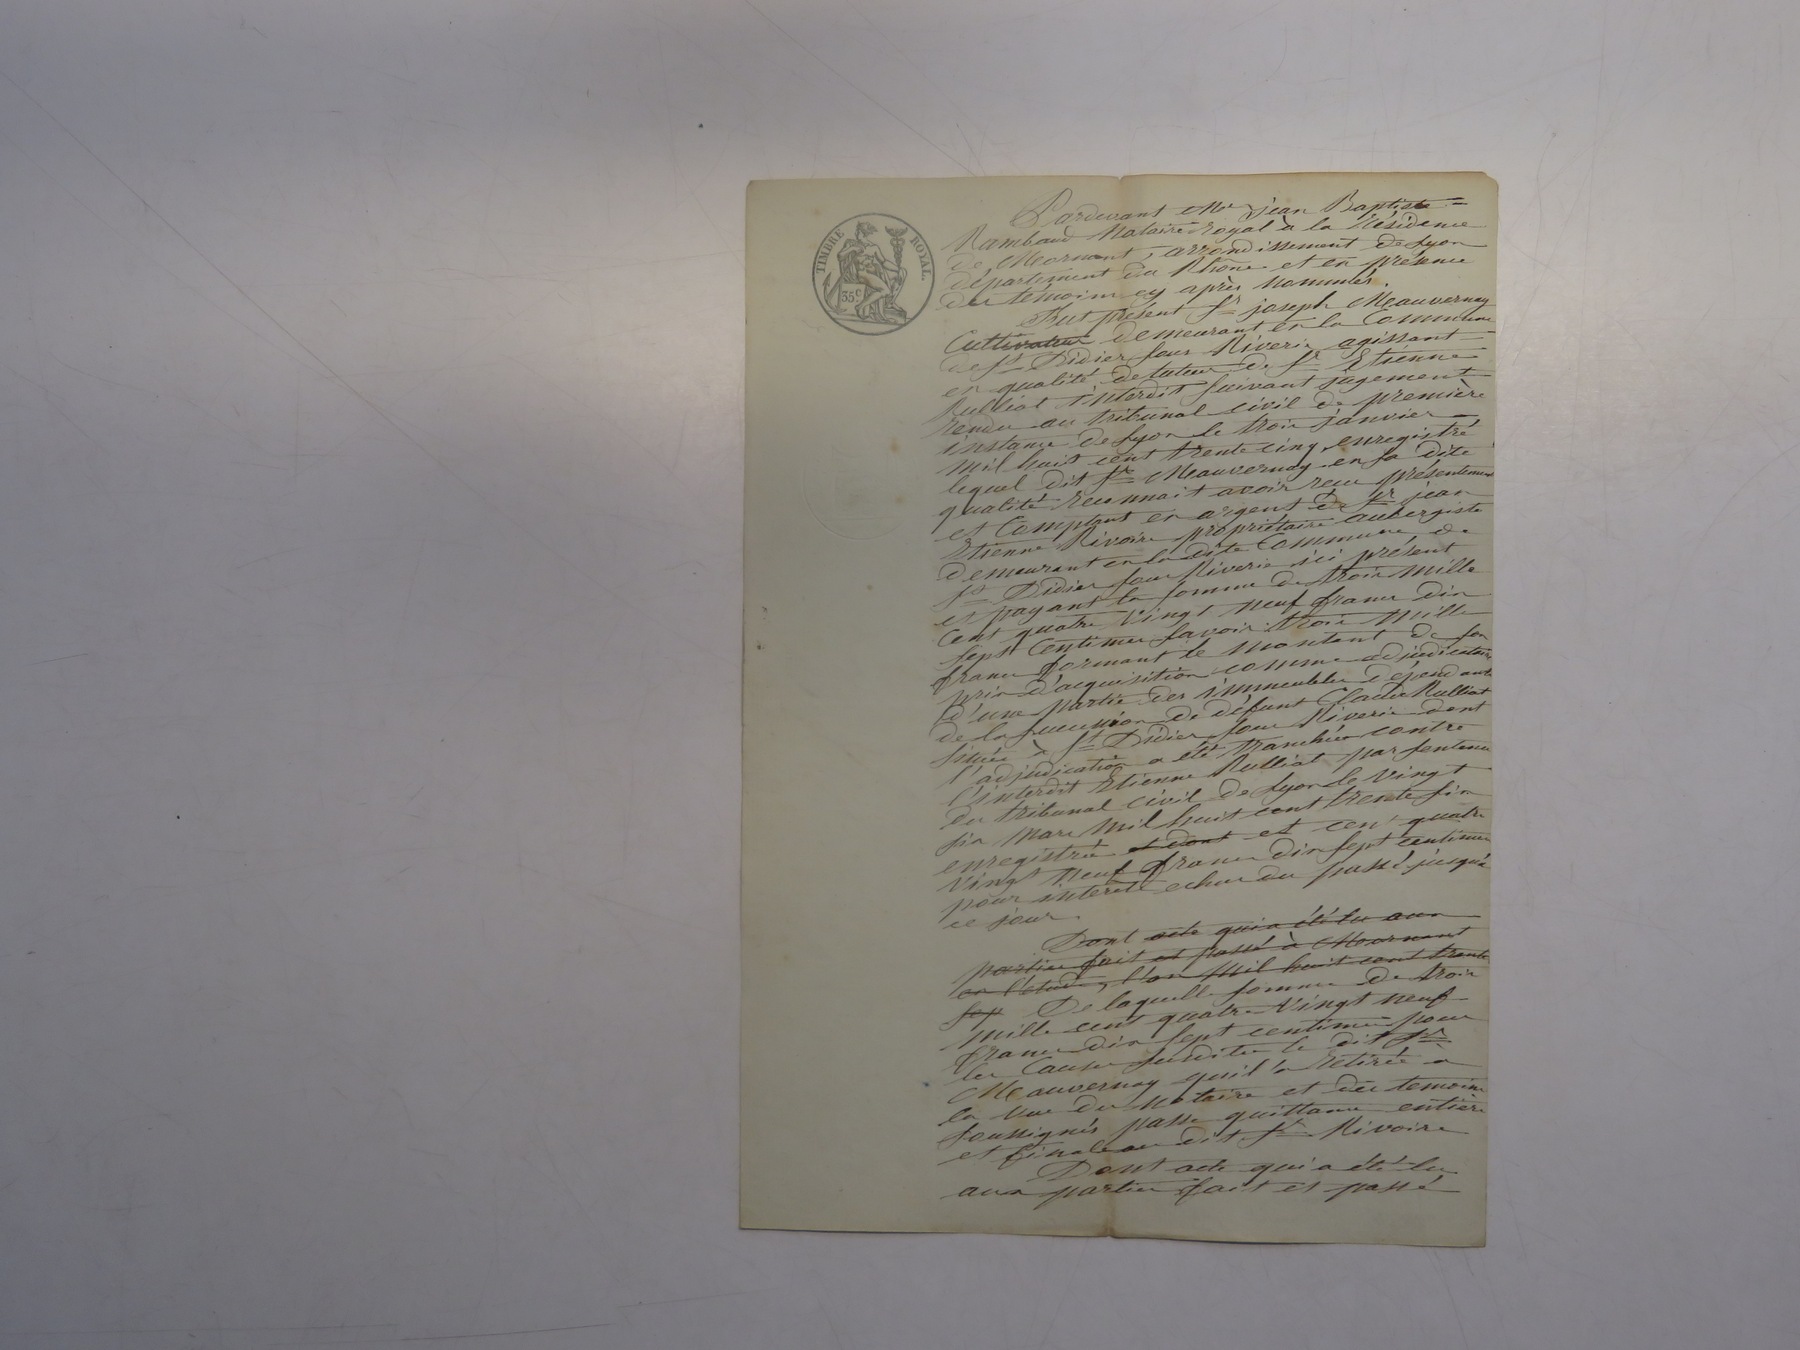 TIMBRE ROYAL
35 c.
Pardevant Me jean Baptiste
Rambaud Notaire royal à la Résidence
de Mornant, arrondissement de Lyon
département du Rhône et en présence
des témoins cy après nommés.
Fut présent Sr joseph Meauvernay
Cultivateur demeurant en la Commune
de St Didier sous Riverie agissant
en qualité de tuteur de Sr Etienne
Rulliat interdit suivant jugement
rendu au tribunal civil de première
instance de Lyon le trois janvier
mil huit cent trente cinq, enregistré
lequel dit Sr Meauvernay en sa dite
qualité reconnait avoir reçu présentement
et Comptant en argent de Sr jean
Etienne Rivoire propriétaire aubergiste
demeurant en la dite Commune de
St Didier sous Riverie ici présent
et payant la somme de trois mille
Cent quatre vingt neuf francs dix
sept Centimes savoir: trois mille
francs formant le montant de son
prix d'acquisition comme adjudicataire
d'une partie des immeubles dépendants
de la succession de défunt Claude Rulliat
situés à St Didier sous Riverie dont
l'adjudication a été tranchée contre
l'interdit Etienne Rulliat par sentence
du tribunal civil de Lyon le vingt
six mars mil huit cent trente six
enregistrée et dont et cent quatre
vingt neuf francs dix sept centimes
pour intérêts echus du passé jusqu'à
ce jour.
Dont acte qui a été lu aux
parties fait et passé à Mornant
en l'étude, l'an mil huit cent trente
sep De laquelle somme de trois
mille cent quatre vingt neuf
francs dix sept centimes pour
les Causes susdites le dit Sr
Meauvernay qui l'a retirée à
la vue du Notaire et des temoins
soussignés passe quittance entière
et finale au dit Sr Rivoire
Dont acte qui a été lu
aux parties fait et passé